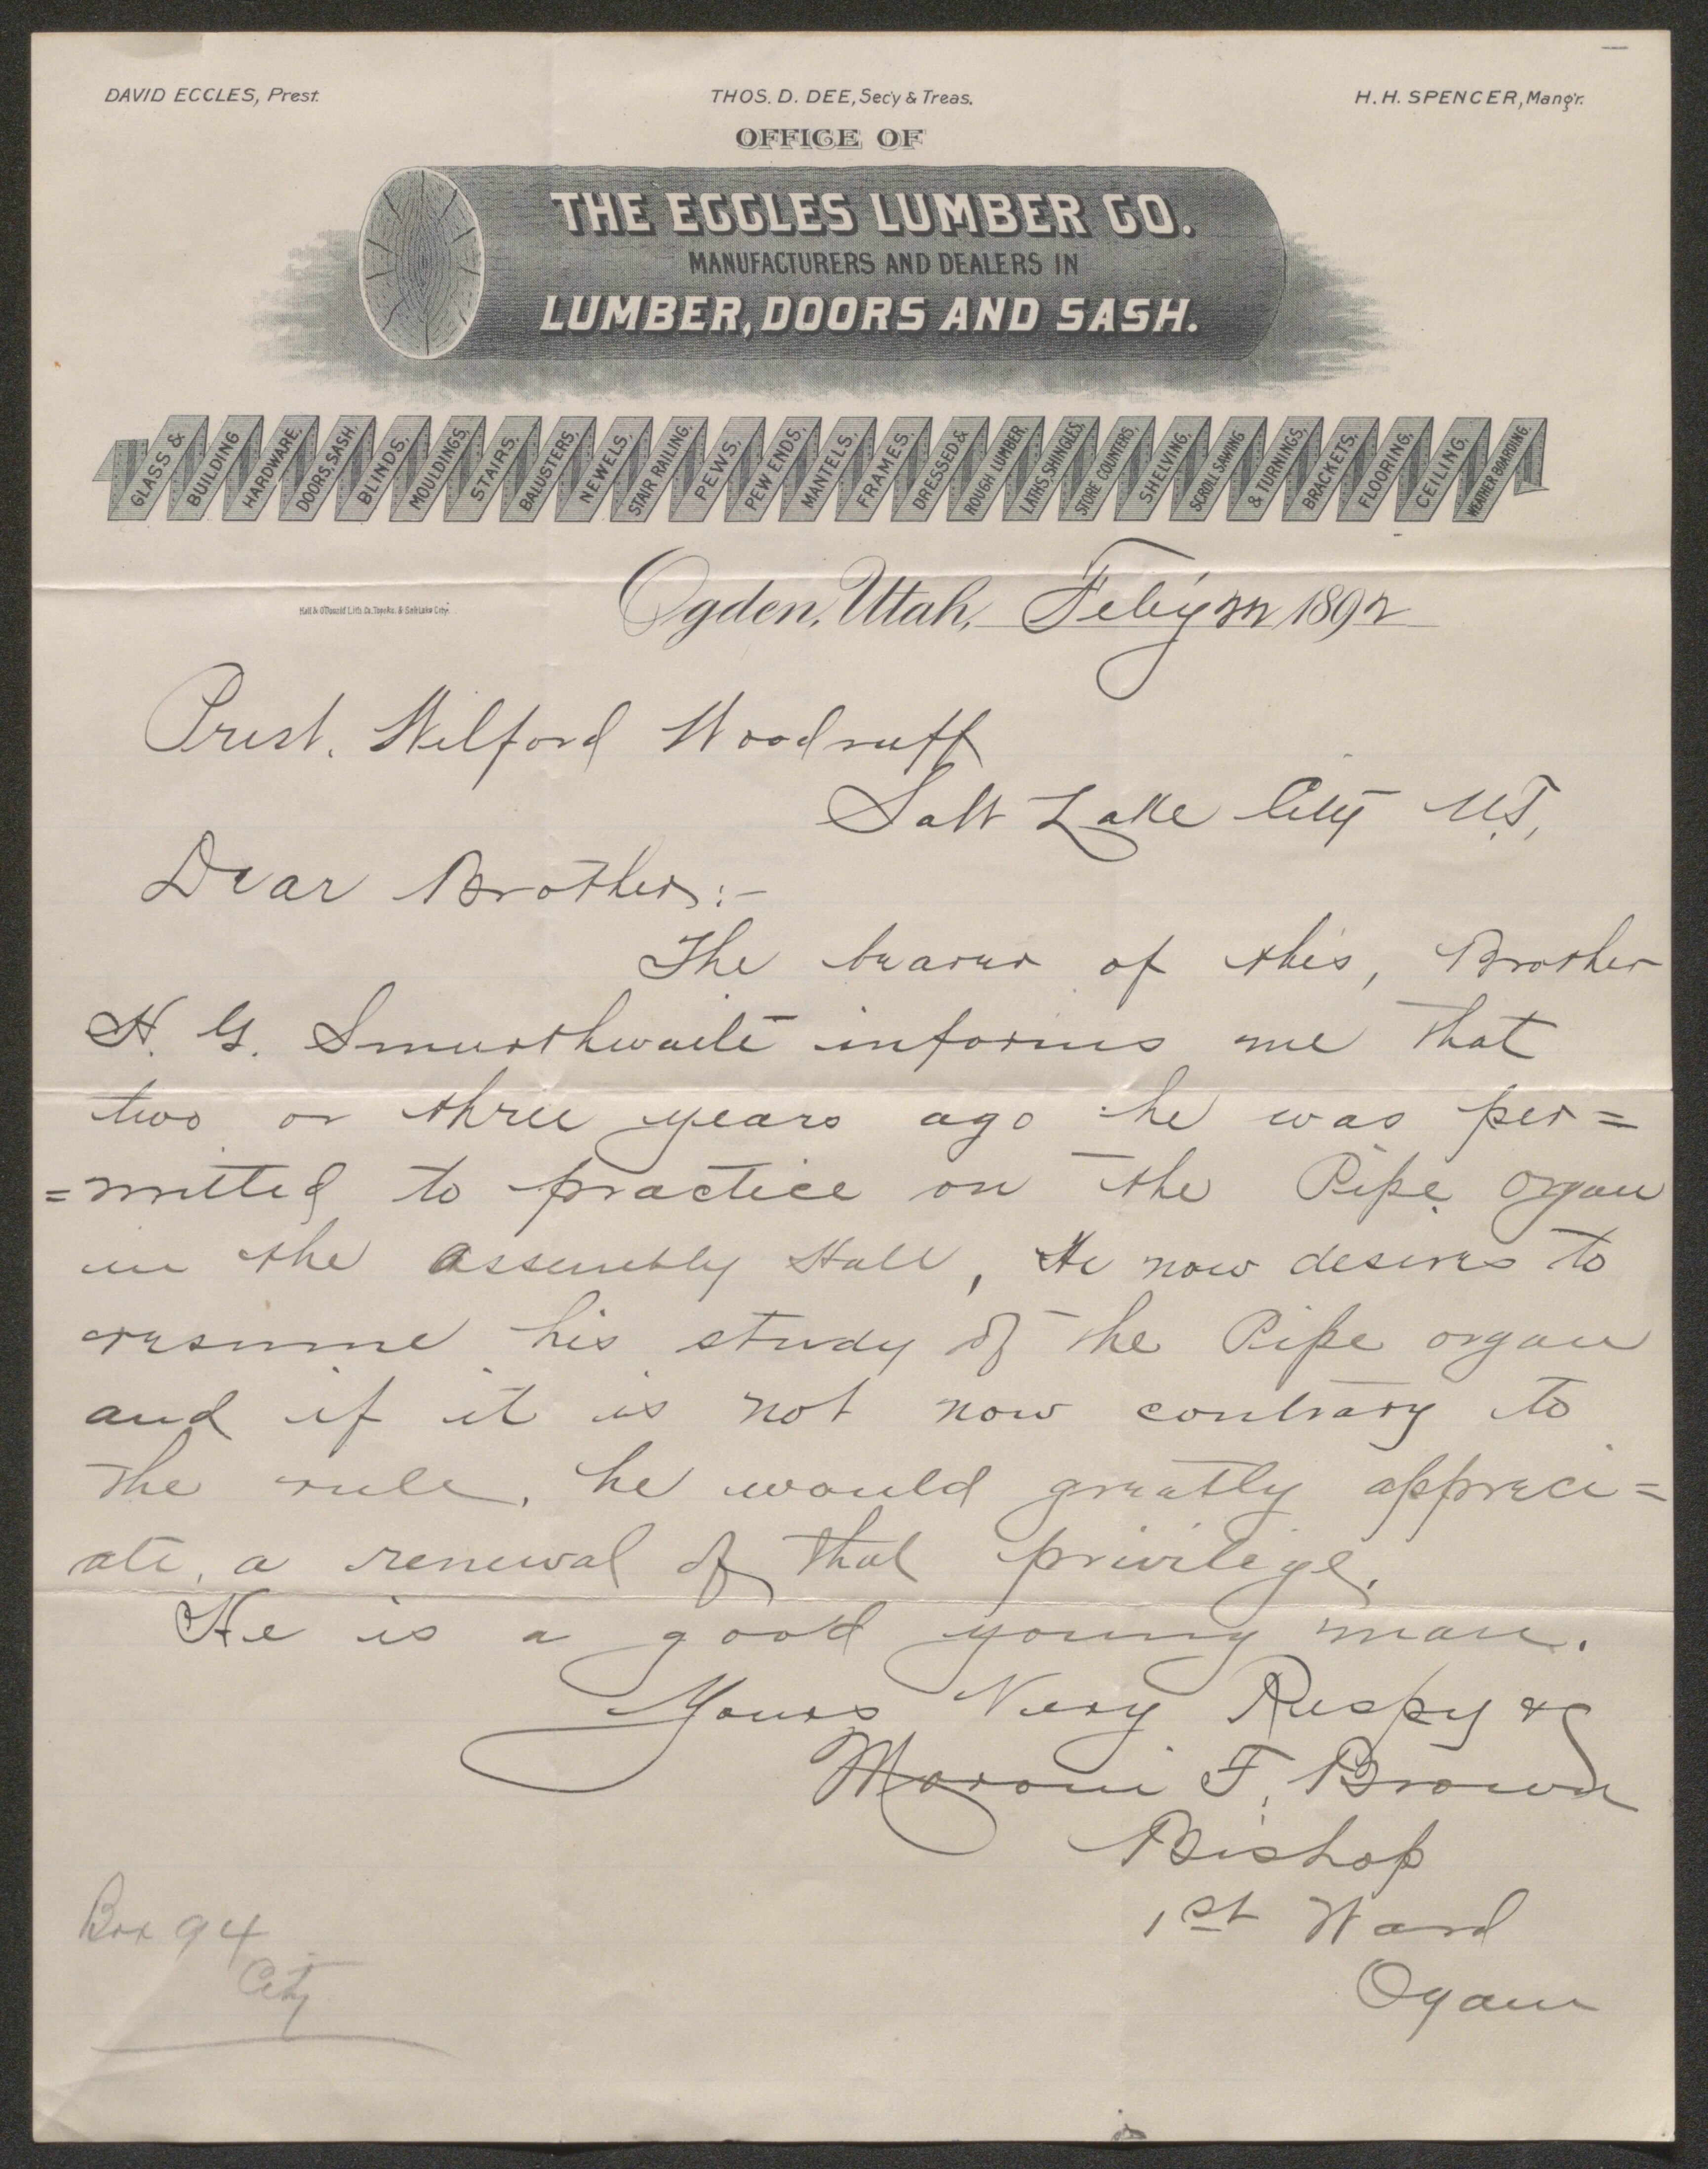 DAVID ECCLES, Prest. THOS. D. DEE, Sec'y & Treas. H. H. SPENCER, Mang'r.
OFFICE OF
THE ECCLES LUMBER CO.
MANUFACTURERS AND DEALERS IN
LUMBER, DOORS AND SASH.
GLASS & BUILDING HARDWARE, DOORS, SASH, BLINDS, MOULDINGS, STAIRS, BALUSTERS, NEWELS, STAIR RAILING, PEWS, PEW ENDS, MANTELS, FRAMES, DRESSED & ROUGH LUMBER, LATHS, SHINGLES, STORE COUNTERS, SHELVING, SCROLL SAWING & TURNINGS, BRACKETS, FLOORING, CEILING, WEATHER BOARDING.
Ogden, Utah, Feb'y 22 1892
Hall & O'Donald Lith. Co. Topeka. & Salt Lake City.
Prest. Wilford Woodruff
Salt Lake City U.T,
Dear Brother:-
The bearer of this, Brother
H. G. Smurthwaite informs me that
two or three years ago he was per=
=mitted to practice on the Pipe organ
in the assembly Hall, He now desires to
resume his study of the Pipe organ
and if it is not now contrary to
the rule, he would greatly appreci=
ate, a renewal of that privilege.
He is a good young man.
Yours Very Respy &c
Moroni F. Brown
Bishop
1st Ward
Ogden
Box 94
City